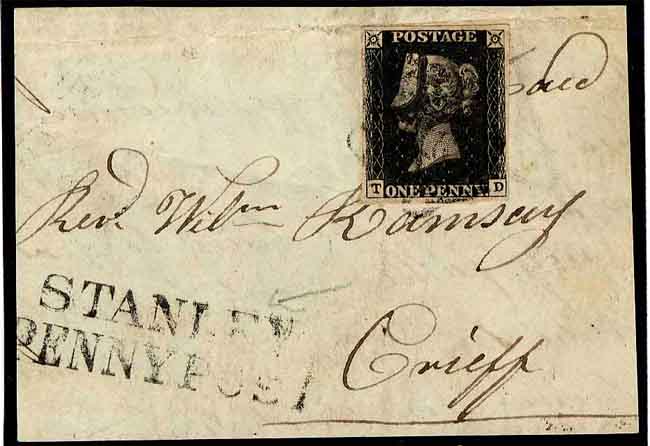 POSTAGE
Paid
T ONE PENNY D
Revd Wilm Ramsay
STANLEY
PENNY POST
Crieff